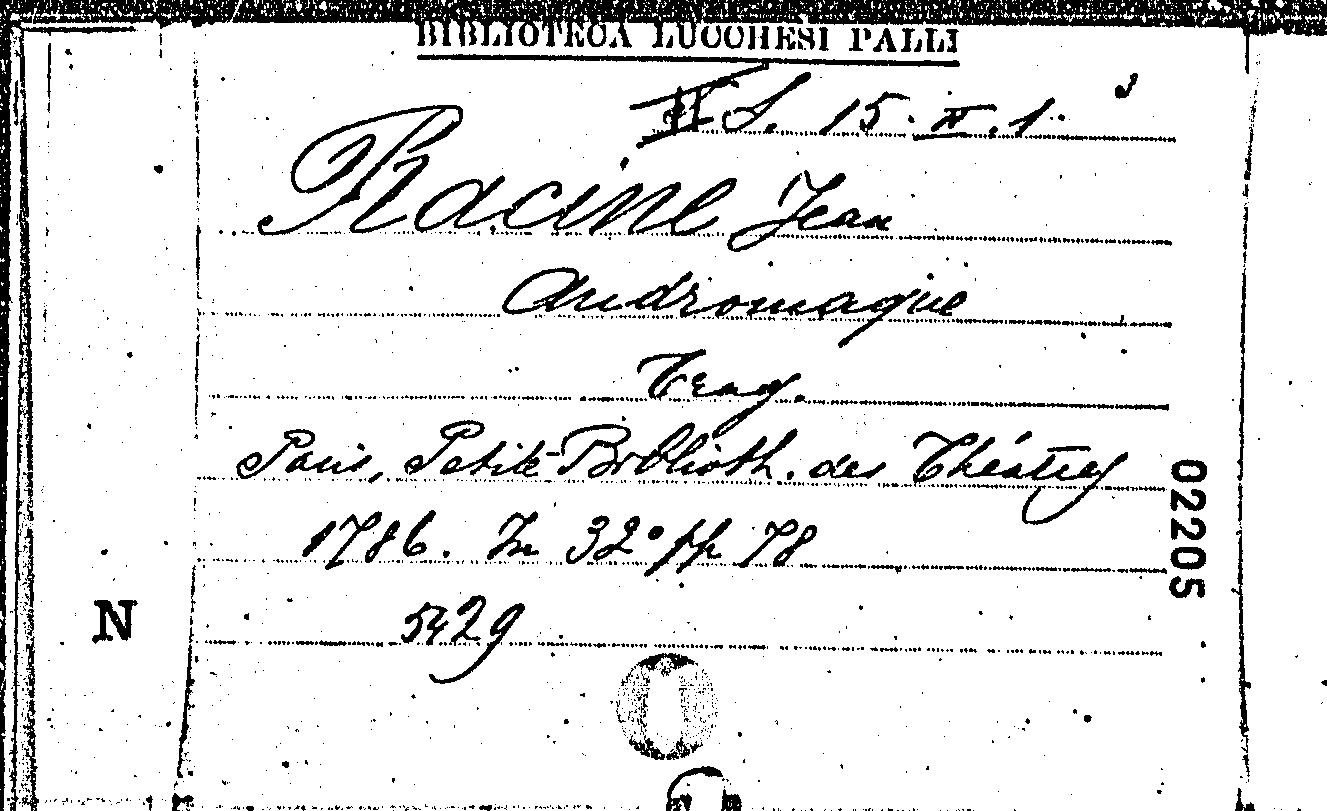 BIBLIOTECA LUCCHESI PALLI
S. 15. II. 1. 3
Racine Jean
Andromaque
Trag.
Paris, Petite Biblioth. des Théâtres
1786. In 32° pp 78
5429
N
02205